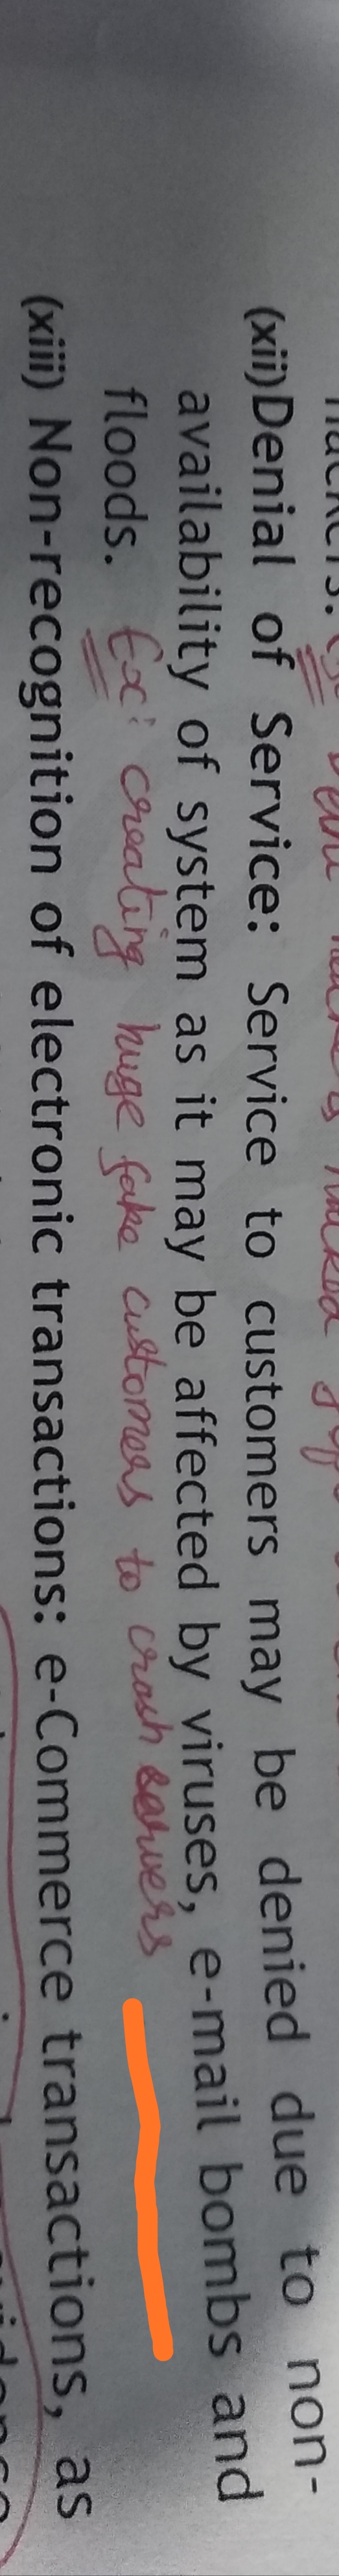 (xii)Denial of Service: Service to customers may be denied due to non-
availability of system as it may be affected by viruses, e-mail bombs and
floods. Ex: creating huge fake customers to crash servers
(xiii) Non-recognition of electronic transactions: e-Commerce transactions, as